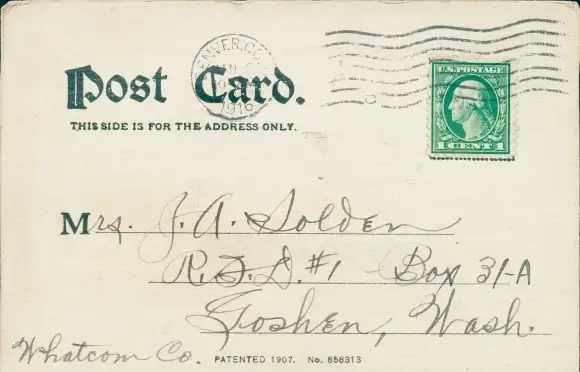 DENVER, CO
1916
Post Card.
THIS SIDE IS FOR THE ADDRESS ONLY.
U.S. POSTAGE
1 CENT 1
Mrs. J. A. Solden
R.F.D. #1 Box 31-A
Goshen, Wash.
Whatcom Co.
PATENTED 1907. No. 858313